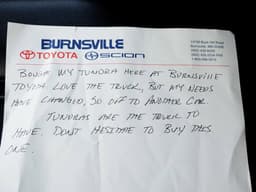 BURNSVILLE
TOYOTA SCION
BOUGHT MY TUNDRA HERE AT BURNSVILLE
TOYOTA. LOVE THE TRUCK, BUT MY NEEDS
HAVE CHANGED, SO OFF TO ANOTHER CAR.
TUNDRAS ARE THE TRUCK TO
HAVE. DON'T HESITATE TO BUY THIS
ONE.